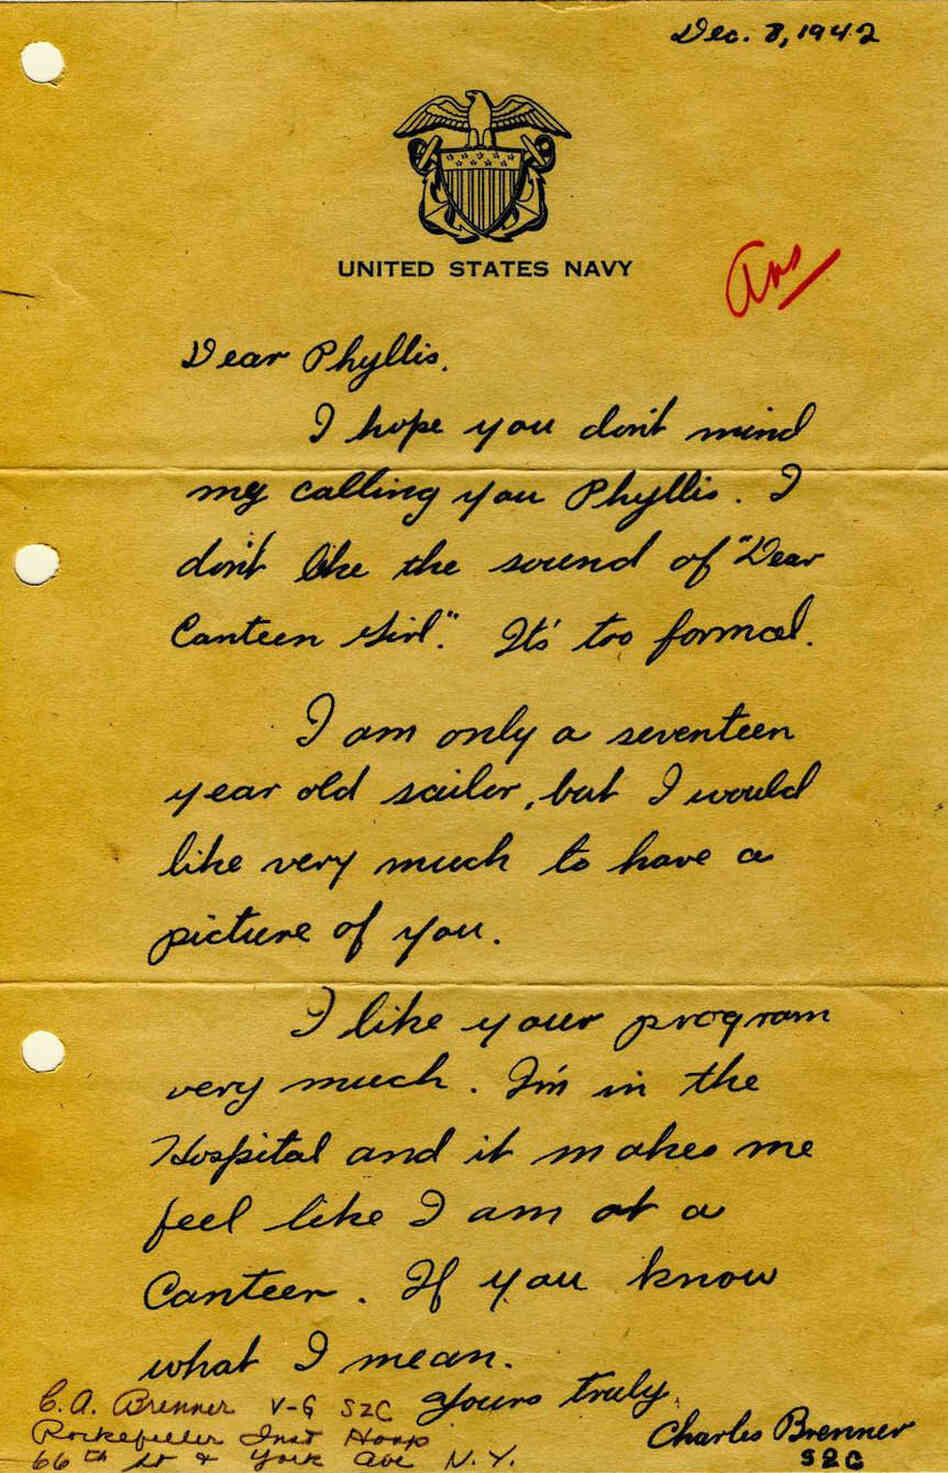 Dec. 8, 1942
UNITED STATES NAVY
Ans
Dear Phyllis,
I hope you don't mind
my calling you Phyllis. I
don't like the sound of "Dear
Canteen Girl". It's too formal.
I am only a seventeen
year old sailor, but I would
like very much to have a
picture of you.
I like your program
very much. I'm in the
Hospital and it makes me
feel like I am at a
Canteen. If you know
what I mean.
Yours truly,
Charles Brenner
S2C
C.A. Brenner V-6 S2C
Rockefeller Inst Hosp
66th St & York Ave N.Y.